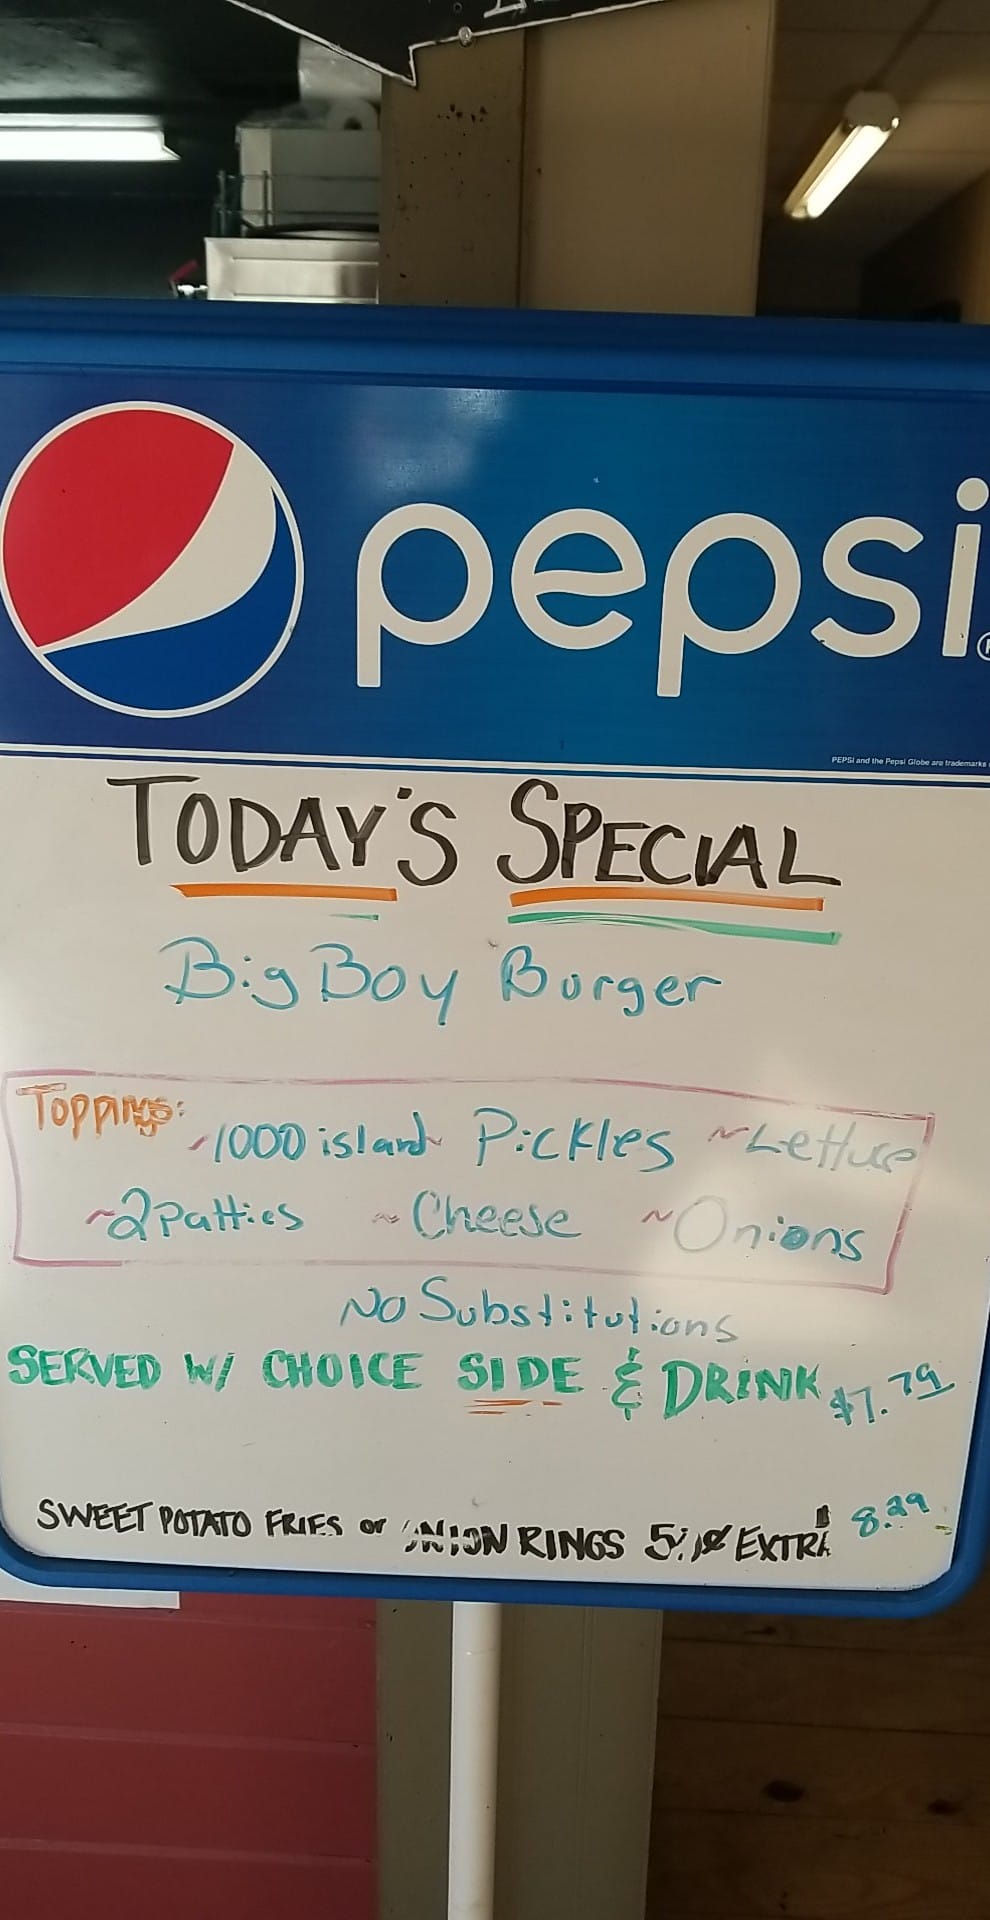 pepsi®
PEPSI and the Pepsi Globe are trademarks
TODAY'S SPECIAL
Big Boy Burger
Toppings: ~1000 island~ Pickles ~Lettuce
~2 Patties ~Cheese ~Onions
No Substitutions
SERVED W/ CHOICE SIDE & DRINK $7.79
SWEET POTATO FRIES or ONION RINGS 50¢ EXTRA 8.29